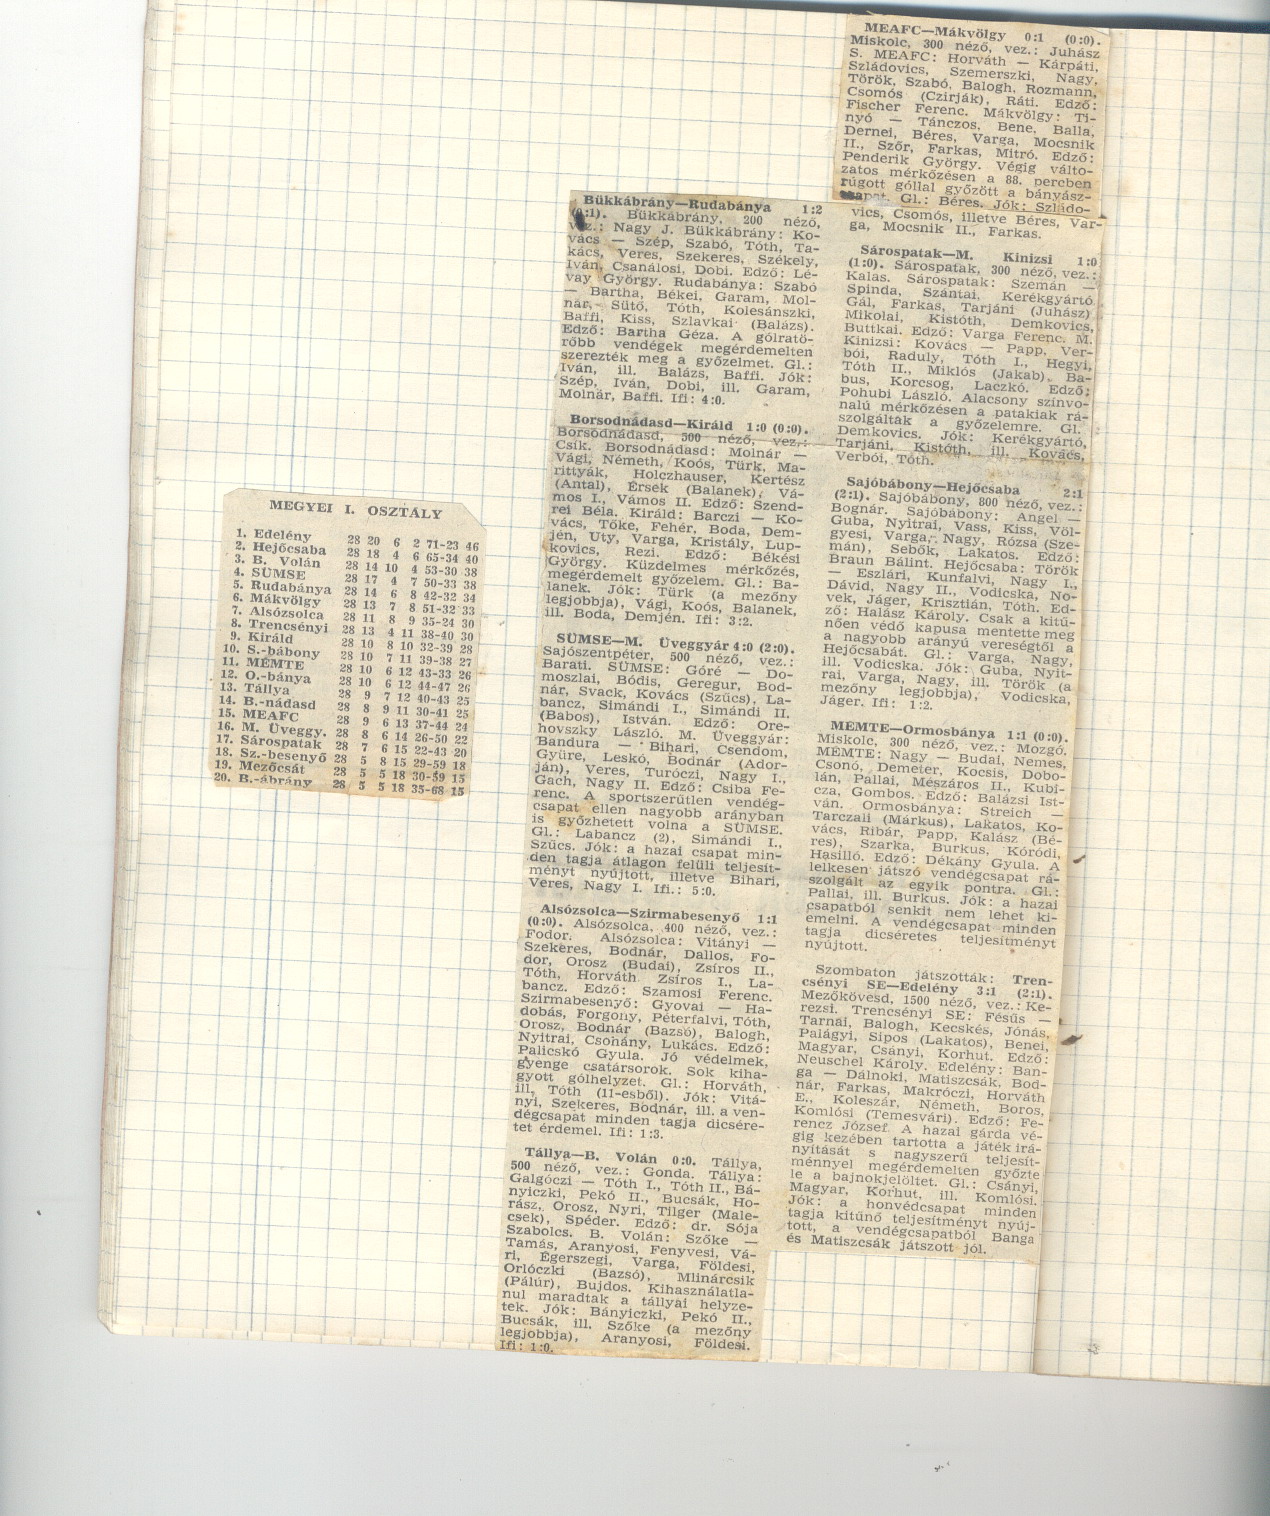 MEGYEI I. OSZTÁLY
1. Edelény 28 20 6 2 71-23 46
2. Hejőcsaba 28 18 4 6 65-34 40
3. B. Volán 28 14 10 4 53-30 38
4. SÜMSE 28 17 4 7 50-33 38
5. Rudabánya 28 14 6 8 42-32 34
6. Mákvölgy 28 13 7 8 51-32 33
7. Alsózsolca 28 11 8 9 35-24 30
8. Trencsényi 28 13 4 11 38-40 30
9. Királd 28 10 8 10 32-39 28
10. S.-bábony 28 10 7 11 39-38 27
11. MÉMTE 28 10 6 12 43-33 26
12. O.-bánya 28 10 6 12 44-47 26
13. Tállya 28 9 7 12 40-43 25
14. B.-nádasd 28 8 9 11 30-41 25
15. MEAFC 28 9 6 13 37-44 24
16. M. Üveggy. 28 8 6 14 26-50 22
17. Sárospatak 28 7 6 15 22-43 20
18. Sz.-besenyő 28 5 8 15 29-59 18
19. Mezőcsát 28 5 5 18 30-59 15
20. B.-ábrány 28 5 5 18 35-68 15
Bükkábrány—Rudabánya 1:2
(0:1). Bükkábrány, 200 néző,
vez.: Nagy J. Bükkábrány: Ko-
vács — Szép, Szabó, Tóth, Ta-
kács, Veres, Szekeres, Székely,
Iván, Csanálosi, Dobi. Edző: Lé-
vay György. Rudabánya: Szabó
— Bartha, Békei, Garam, Mol-
nár, Sütő, Tóth, Kolesánszki,
Baffi, Kiss, Szlavkai (Balázs).
Edző: Bartha Géza. A gólratö-
rőbb vendégek megérdemelten
szerezték meg a győzelmet. Gl.:
Iván, ill. Balázs, Baffi. Jók:
Szép, Iván, Dobi, ill. Garam,
Molnár, Baffi. Ifi: 4:0.
Borsodnádasd—Királd 1:0 (0:0).
Borsodnádasd, 500 néző, vez.:
Csik. Borsodnádasd: Molnár —
Vági, Németh, Koós, Türk, Ma-
rittyák, Holczhauser, Kertész
(Antal), Érsek (Balanek), Vá-
mos I., Vámos II. Edző: Szend-
rei Béla. Királd: Barczi — Ko-
vács, Tőke, Fehér, Boda, Dem-
jén, Uty, Varga, Kristály, Lup-
kovics, Rezi. Edző: Békési
György. Küzdelmes mérkőzés,
megérdemelt győzelem. Gl.: Ba-
lanek. Jók: Türk (a mezőny
legjobbja), Vági, Koós, Balanek,
ill. Boda, Demjén. Ifi: 3:2.
SÜMSE—M. Üveggyár 4:0 (2:0).
Sajószentpéter, 500 néző, vez.:
Barati. SÜMSE: Góré — Do-
moszlai, Bódis, Geregur, Bod-
nár, Svack, Kovács (Szűcs), La-
bancz, Simándi I., Simándi II.
(Babos), István. Edző: Ore-
hovszky László. M. Üveggyár:
Bandura — Bihari, Csendom,
Gyüre, Leskó, Bodnár (Ador-
ján), Veres, Turóczi, Nagy I.,
Gach, Nagy II. Edző: Csiba Fe-
renc. A sportszerűtlen vendég-
csapat ellen nagyobb arányban
is győzhetett volna a SÜMSE.
Gl.: Labancz (2), Simándi I.,
Szűcs. Jók: a hazai csapat min-
den tagja átlagon felüli teljesít-
ményt nyújtott, illetve Bihari,
Veres, Nagy I. Ifi.: 5:0.
Alsózsolca—Szirmabesenyő 1:1
(0:0). Alsózsolca, 400 néző, vez.:
Fodor. Alsózsolca: Vitányi —
Szekeres, Bodnár, Dallos, Fo-
dor, Orosz (Budai), Zsíros II.,
Tóth, Horváth Zsíros I., La-
bancz. Edző: Szamosi Ferenc.
Szirmabesenyő: Gyovai — Ha-
dobás, Forgony, Péterfalvi, Tóth,
Orosz, Bodnár (Bazsó), Balogh,
Nyitrai, Csohány, Lukács. Edző:
Palicskó Gyula. Jó védelmek,
gyenge csatársorok. Sok kiha-
gyott gólhelyzet. Gl.: Horváth,
ill. Tóth (11-esből). Jók: Vitá-
nyi, Szekeres, Bodnár, ill. a ven-
dégcsapat minden tagja dicsére-
tet érdemel. Ifi: 1:3.
Tállya—B. Volán 0:0. Tállya,
500 néző, vez.: Gonda. Tállya:
Galgóczi — Tóth I., Tóth II., Bá-
nyiczki, Pekó II., Bucsák, Ho-
rász, Orosz, Nyri, Tilger (Male-
csek), Spéder. Edző: dr. Sója
Szabolcs. B. Volán: Szőke —
Tamás, Aranyosi, Fenyvesi, Vá-
ri, Egerszegi, Varga, Földesi,
Orlóczki (Bazsó), Mlinárcsik
(Pálúr), Bujdos. Kihasználatla-
nul maradtak a tállyai helyze-
tek. Jók: Bányiczki, Pekó II.,
Bucsák, ill. Szőke (a mezőny
legjobbja), Aranyosi, Földesi.
Ifi: 1:0.
MEAFC—Mákvölgy 0:1 (0:0).
Miskolc, 300 néző, vez.: Juhász
S. MEAFC: Horváth — Kárpáti,
Szládovics, Szemerszki, Nagy,
Török, Szabó, Balogh, Rozmann,
Csomós (Czirják), Ráti. Edző:
Fischer Ferenc. Mákvölgy: Ti-
nyó — Tánczos, Bene, Balla,
Dernei, Béres, Varga, Mocsnik
II., Szőr, Farkas, Mitró. Edző:
Penderik György. Végig válto-
zatos mérkőzésen a 88. percben
rúgott góllal győzött a bányász-
csapat. Gl.: Béres. Jók: Szládo-
vics, Csomós, illetve Béres, Var-
ga, Mocsnik II., Farkas.
Sárospatak—M. Kinizsi 1:0
(1:0). Sárospatak, 300 néző, vez.:
Kalas. Sárospatak: Szemán —
Spinda, Szántai, Kerékgyártó
Gál, Farkas, Tarjáni (Juhász)
Mikolai, Kistóth, Demkovics,
Buttkai. Edző: Varga Ferenc. M.
Kinizsi: Kovács — Papp, Ver-
bói, Raduly, Tóth I., Hegyi,
Tóth II., Miklós (Jakab), Ba-
bus, Korcsog, Laczkó. Edző:
Pohubi László. Alacsony színvo-
nalú mérkőzésen a patakiak rá-
szolgáltak a győzelemre. Gl.
Demkovics. Jók: Kerékgyártó,
Tarjáni, Kistóth, ill. Kovács,
Verbói, Tóth.
Sajóbábony—Hejőcsaba 2:1
(2:1). Sajóbábony, 800 néző, vez.:
Bognár. Sajóbábony: Angel —
Guba, Nyitrai, Vass, Kiss, Völ-
gyesi, Varga, Nagy, Rózsa (Sze-
mán), Sebők, Lakatos. Edző:
Braun Bálint. Hejőcsaba: Török
— Eszlári, Kunfalvi, Nagy I.,
Dávid, Nagy II., Vodicska, No-
vek, Jáger, Krisztián, Tóth. Ed-
ző: Halász Károly. Csak a kitű-
nően védő kapusa mentette meg
a nagyobb arányú vereségtől a
Hejőcsabát. Gl.: Varga, Nagy,
ill. Vodicska. Jók: Guba, Nyit-
rai, Varga, Nagy, ill. Török (a
mezőny legjobbja), Vodicska,
Jáger. Ifi: 1:2.
MÉMTE—Ormosbánya 1:1 (0:0).
Miskolc, 300 néző, vez.: Mozgó.
MÉMTE: Nagy — Budai, Nemes,
Csonó, Demeter, Kocsis, Dobo-
lán, Pallai, Mészáros II., Kubi-
cza, Gombos. Edző: Balázsi Ist-
ván. Ormosbánya: Streich —
Tarczali (Márkus), Lakatos, Ko-
vács, Ribár, Papp, Kalász (Bé-
res), Szarka, Burkus, Kóródi,
Hasilló. Edző: Dékány Gyula. A
lelkesen játszó vendégcsapat rá-
szolgált az egyik pontra. Gl.:
Pallai, ill. Burkus. Jók: a hazai
csapatból senkit nem lehet ki-
emelni. A vendégcsapat minden
tagja dicséretes teljesítményt
nyújtott.
Szombaton játszották: Tren-
csényi SE—Edelény 3:1 (2:1).
Mezőkövesd, 1500 néző, vez.: Ke-
rezsi. Trencsényi SE: Fésüs —
Tarnai, Balogh, Kecskés, Jónás,
Palágyi, Sipos (Lakatos), Benei,
Magyar, Csányi, Korhut. Edző:
Neuschel Károly. Edelény: Ban-
ga — Dálnoki, Matiszcsák, Bod-
nár, Farkas, Makróczi, Horváth
E., Koleszár, Németh, Boros,
Komlósi (Temesvári). Edző: Fe-
rencz József. A hazai gárda vé-
gig kezében tartotta a játék irá-
nyítását s nagyszerű teljesít-
ménnyel megérdemelten győzte
le a bajnokjelöltet. Gl.: Csányi,
Magyar, Korhut, ill. Komlósi.
Jók: a honvédcsapat minden
tagja kitűnő teljesítményt nyúj-
tott, a vendégcsapatból Banga
és Matiszcsák játszott jól.